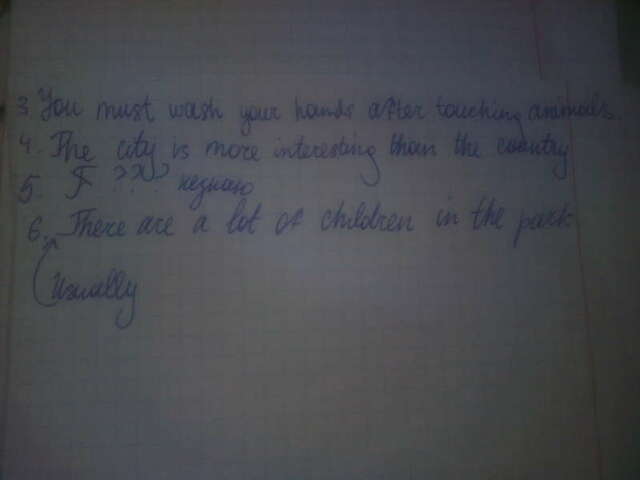 3. You must wash your hands after touching animals.
4. The city is more interesting than the country
5. F ??? незнаю
6. There are a lot of children in the park
(Usually